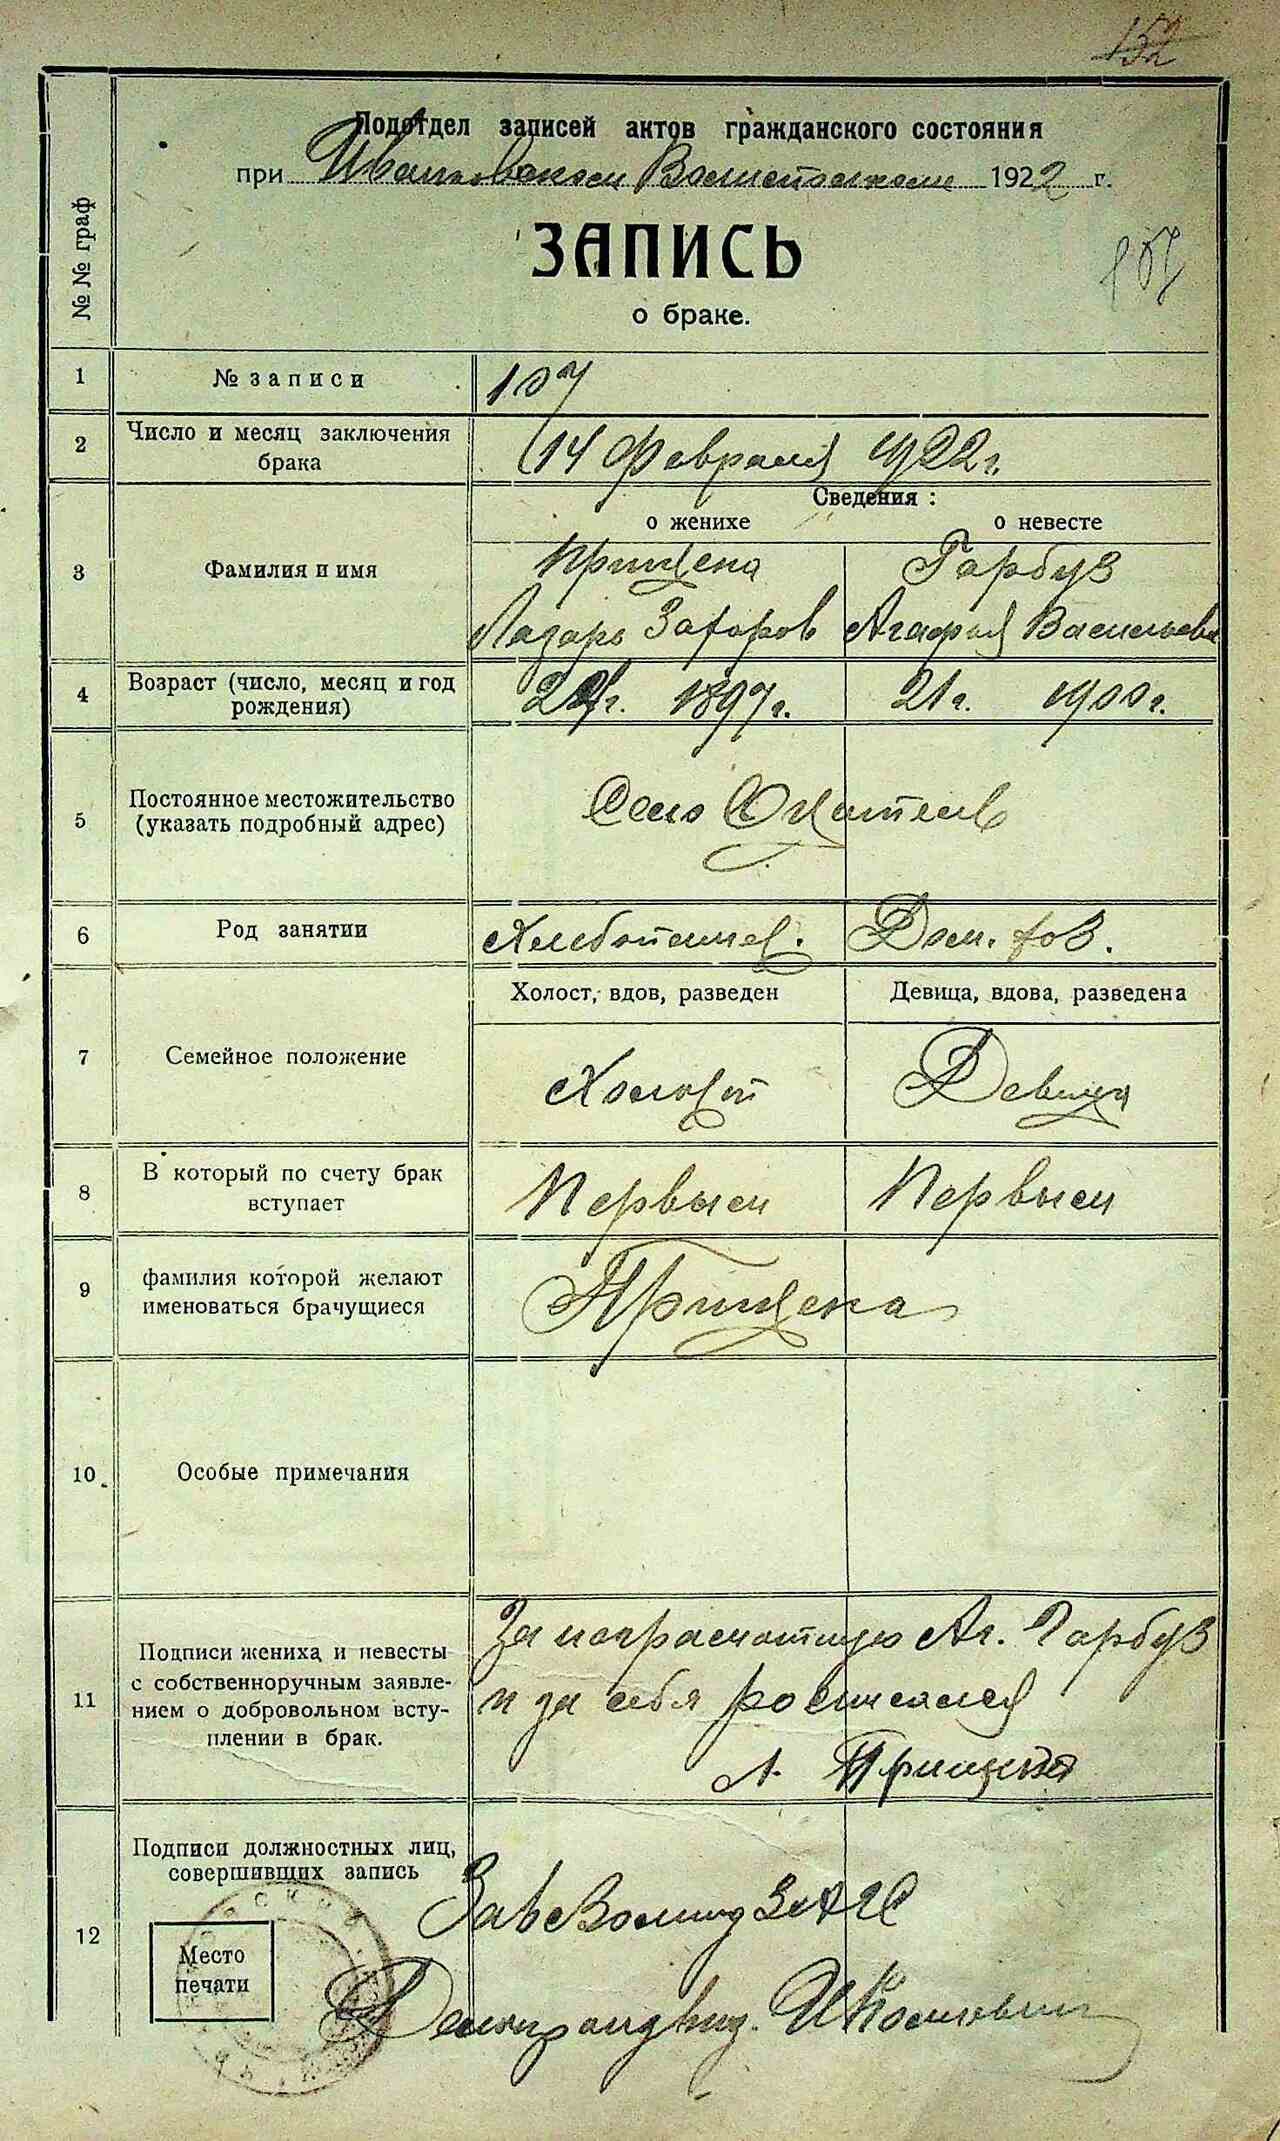 152
Подотдел записей актов гражданского состояния
при Иванковском Волисполкоме 1922 г.
ЗАПИСЬ
о браке.
107
№ № граф
1 № записи 107
2 Число и месяц заключения брака 14 Февраля 1922 г.
Сведения:
о женихе о невесте
3 Фамилия и имя Прищепа Гарбуз
Лазарь Захаров Агафья Васильева
4 Возраст (число, месяц и год рождения) 24 г. 1897 г. 21 г. 1900 г.
5 Постоянное местожительство (указать подробный адрес) Село
6 Род занятии Хлебопашец. Дом. хоз.
Холост, вдов, разведен Девица, вдова, разведена
7 Семейное положение Холостой Девица
8 В который по счету брак вступает Первый Первый
9 фамилия которой желают именоваться брачущиеся Прищепа
10 Особые примечания
11 Подписи жениха и невесты с собственноручным заявлением о добровольном вступлении в брак.
За неграмотную Аг. Гарбуз
и за себя росписался
Л. Прищепа
12 Подписи должностных лиц, совершивших запись
Место печати
Зав ЗАГС